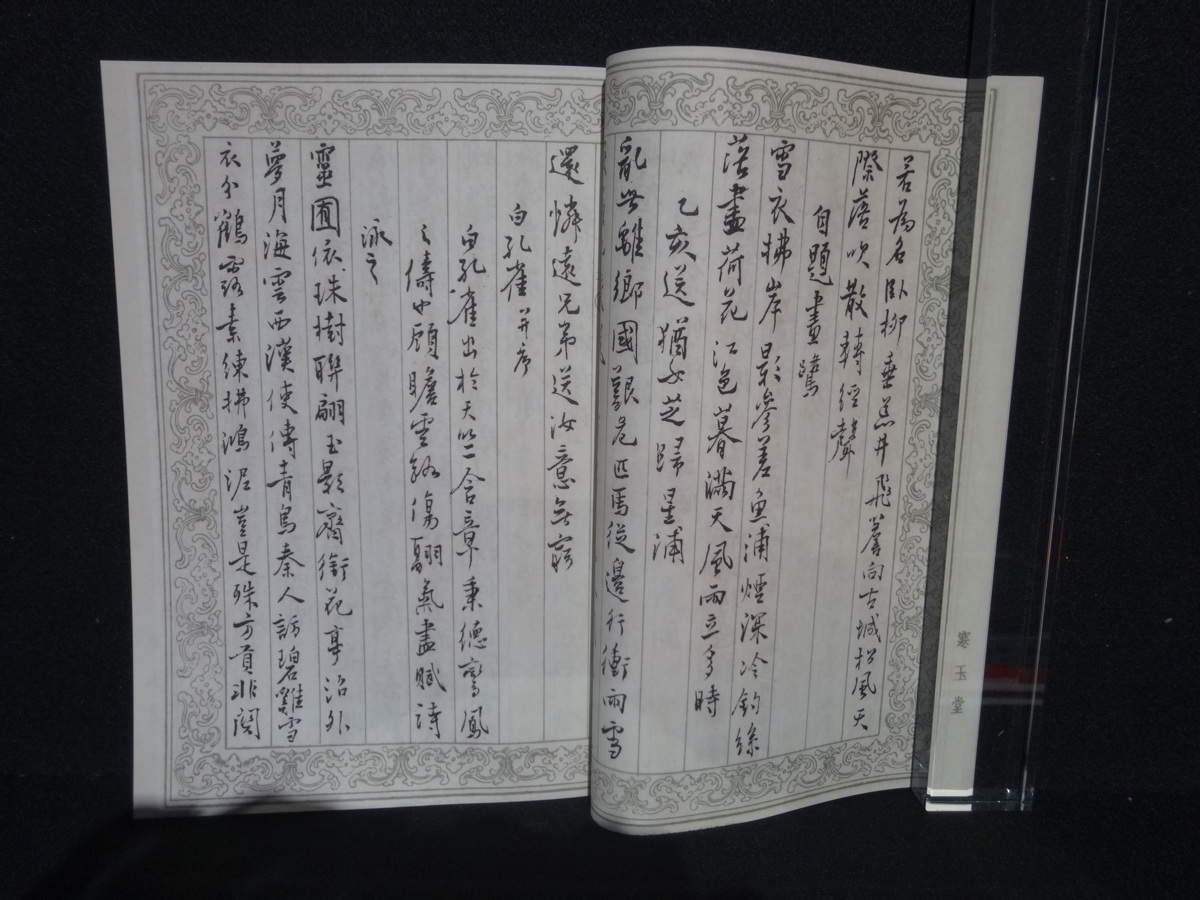 若為名臥柳垂荒井飛蓬向古城松風天
際落吹散轉經聲
自題畫鷺
雪衣拂岸影參差魚浦煙深冷釣絲
落盡荷花江色暮滿天風雨立多時
乙亥送猶女芝歸星浦
亂世離鄉國艱危匹馬從邊行衝雨雪
還憐遠兄弟送汝意無窮
白孔雀并序
白孔雀出於天竺含章秉德鸞鳳
之儔也顧瞻雲路傷翮氣盡賦詩
詠之
靈囿依珠樹聯翩玉影齊銜花亭沼外
夢月海雲西漢使傳青鳥秦人訪碧雞雪
衣分鶴露素練拂鴻泥豈是殊方貢非關
寒玉堂